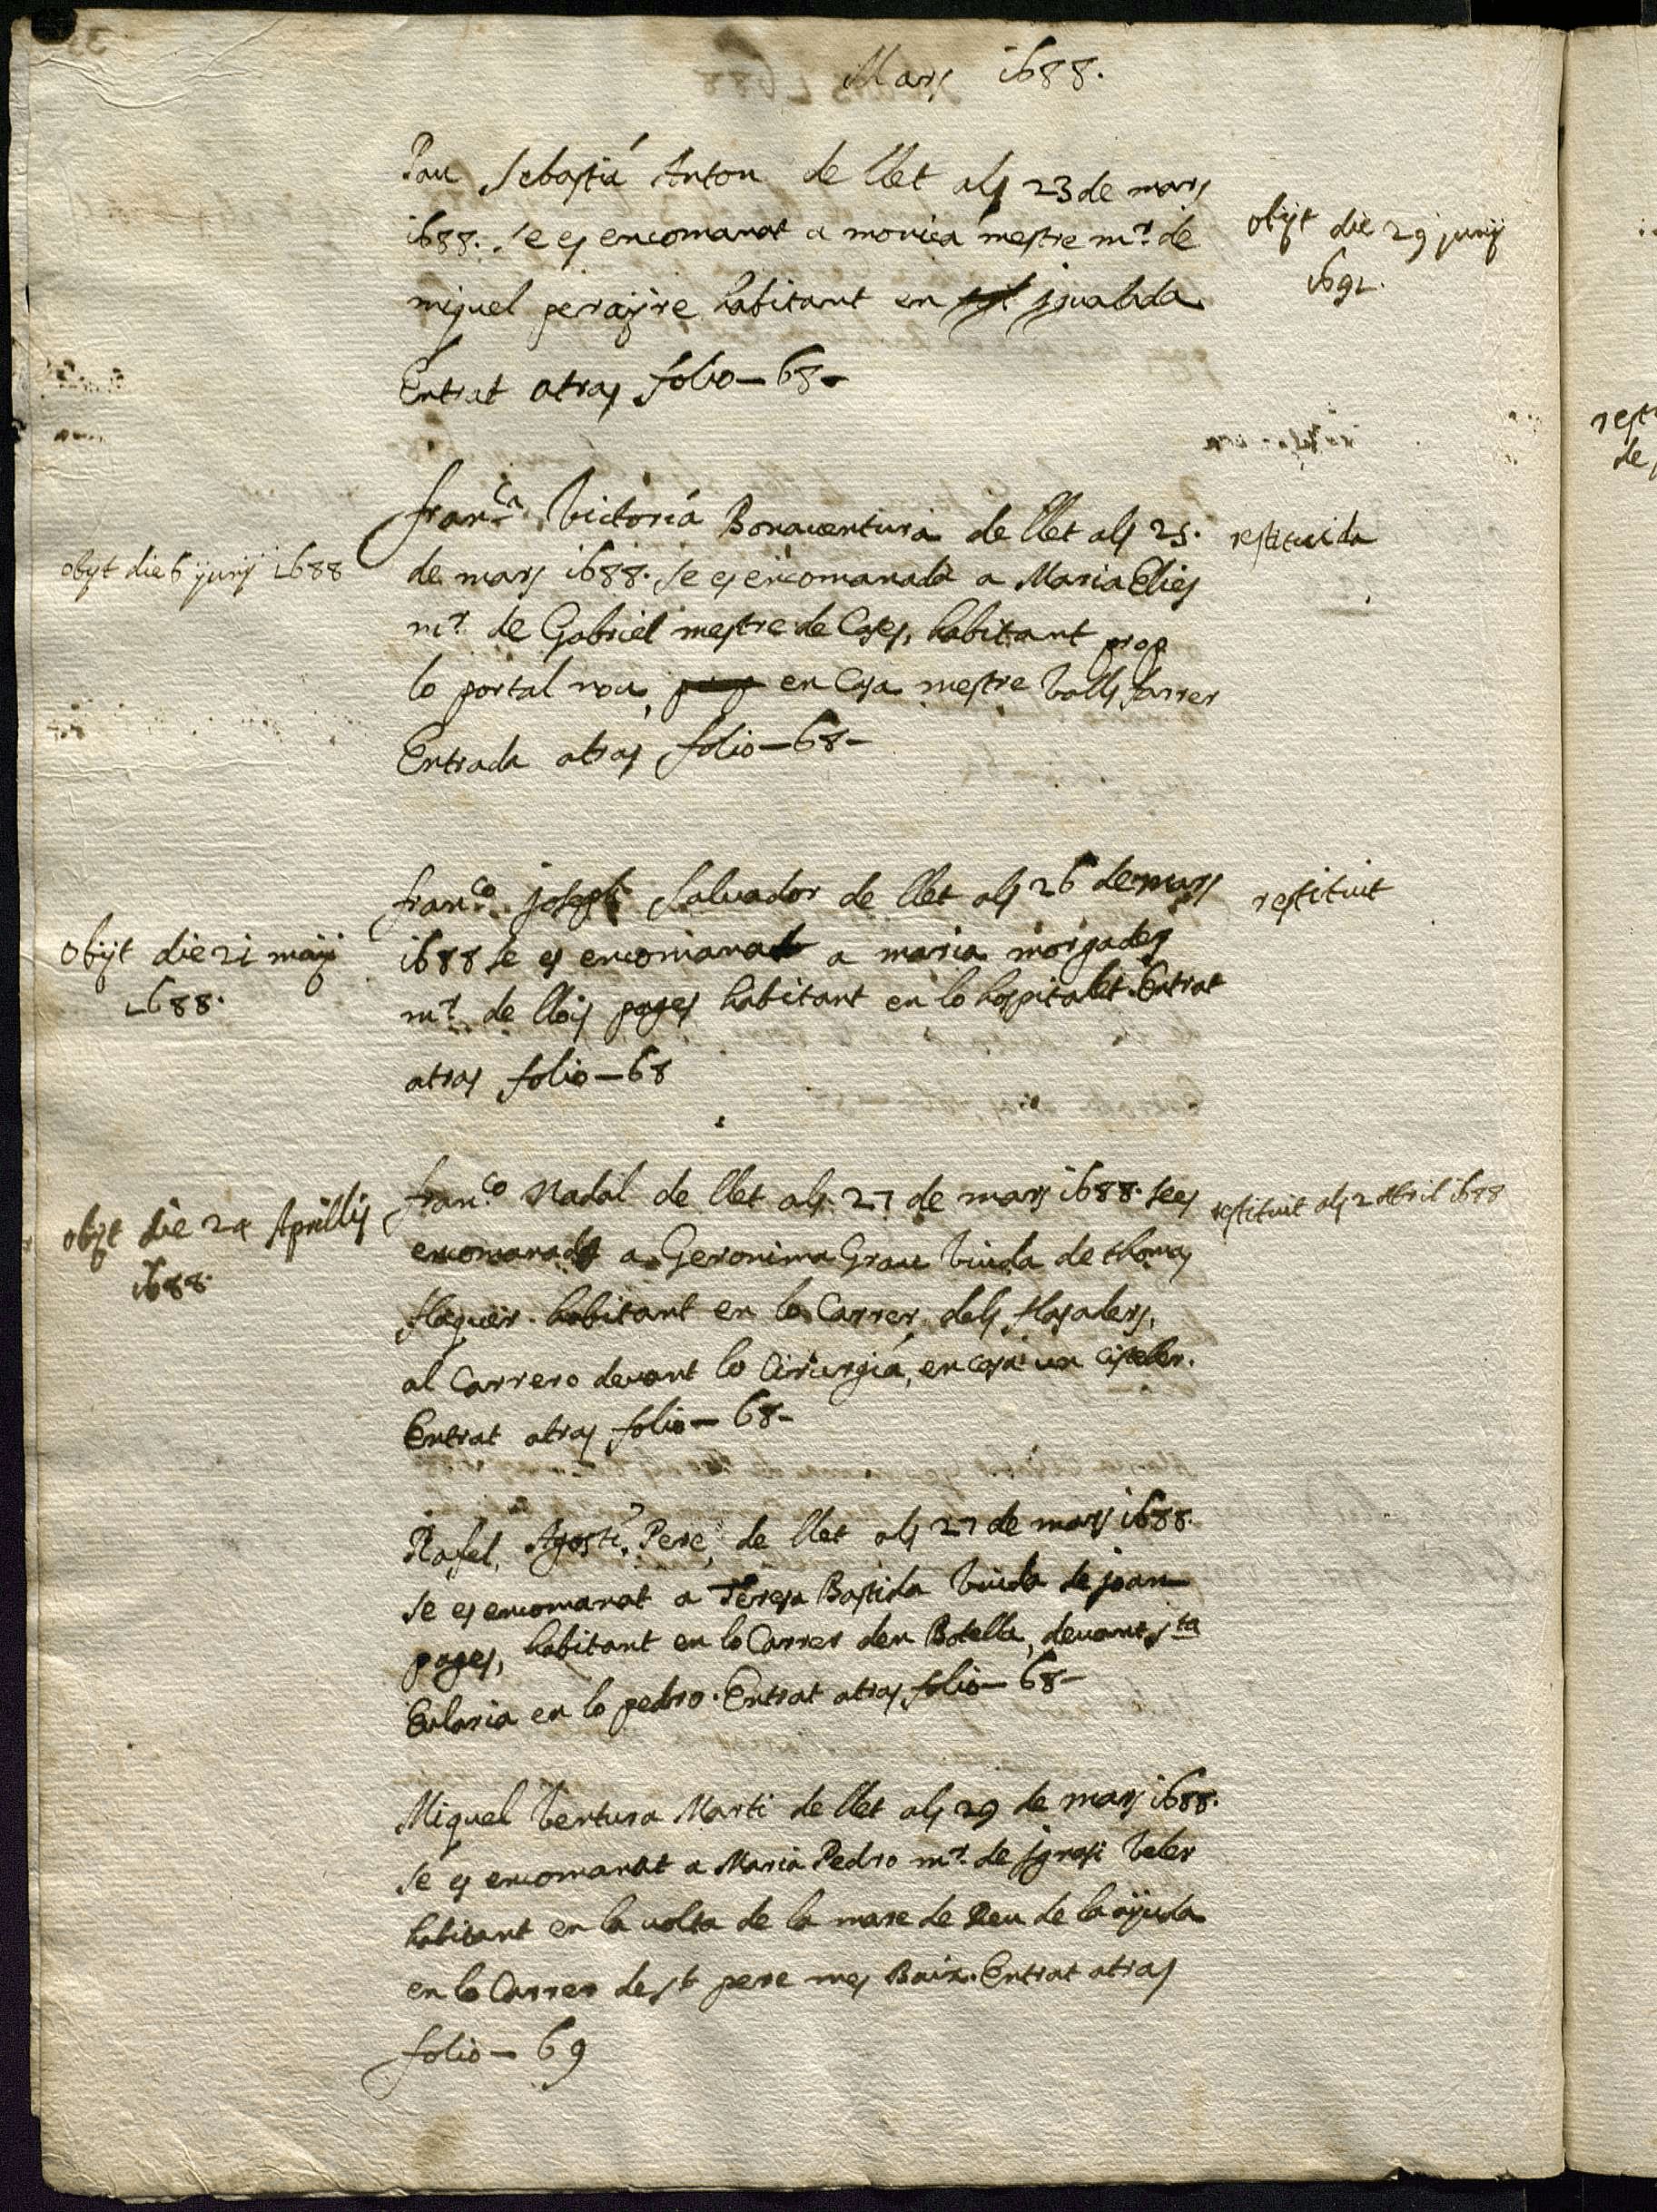 Mars 1688.
Pau Sebastiá Anton de llet als 23 de mars
1688. Se es encomanat a monica mestre mr. de
miquel perayre habitant en igualada
Entrat atras folio - 68 -
obijt die 29 junij
1691.
franca. Victoria Bonaventura de llet als 25.
de mars 1688. Se es encomanada a Maria Elies
mr. de Gabriel mestre de Cases, habitant prop
lo portal nou, en Casa mestre Valls farrer
Entrada atras folio - 68 -
obijt die 6 junij 1688
restituida
franco. joseph Salvador de llet als 26 de mars
1688 se es encomanat a maria morgades
mr. de llois pages habitant en lo hospitalet. Entrat
atras folio - 68
obijt die 21 maij
1688.
restituit
franco Nadal de llet als 27 de mars 1688. se es
encomanat a Geronima Grau viuda de thomas
flaquer. habitant en lo Carrer dels flasaders,
al Carrero devant lo Cirurgiá, en casa un cisteler.
Entrat atras folio - 68 -
obijt die 24 Aprillis
1688.
restituit als 2 Abril 1688
Rafel, Agosti, Pere, de llet als 27 de mars 1688.
se es encomanat a Teresa Bastida viuda de joan
pages, habitant en lo Carrer den Botella, devant sta
Eularia en lo pedro. Entrat atras folio - 68 -
Miquel Ventura Marti de llet als 29 de mars 1688.
se es encomanat a Maria Pedro mr. de ignasi Veler
habitant en la volta de la mare de Deu de la ajuda
en lo Carrer de st pere mes Baix. Entrat atras
folio - 69